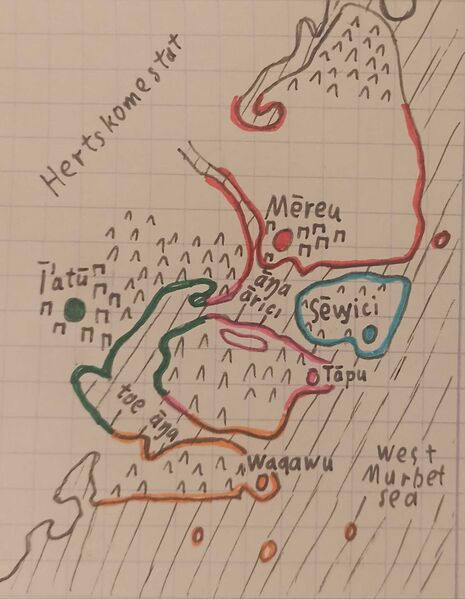 Hertskomestat
Mēreu
Ī'atū
āŋa
ārici
Sēwici
Tāpu
toe āŋa
Waqawu
West
Murbet
sea